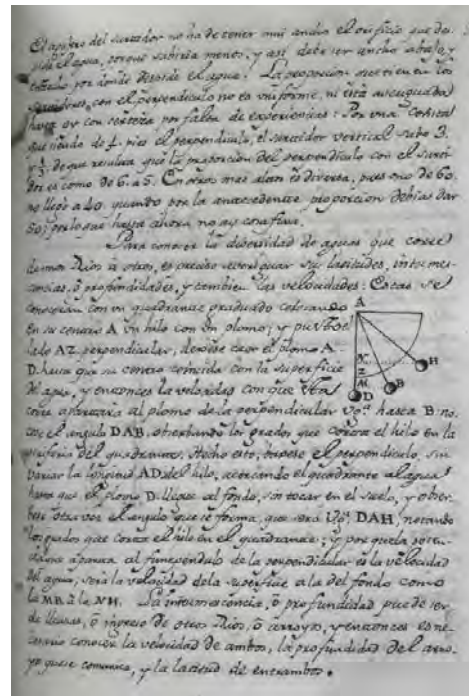 El agujero del surtidor no ha de tener mui ancho el orificio que des-
pide el agua, porque subiria menos, y asi debe ser ancho abajo, y
estrecho por donde despide el agua. La proporcion que tienen los
surtidores, con el perpendiculo no es uniforme, ni está averiguada
hasta oy con certeza por falta de experiencias: Por una consta
que siendo de 4. pies el perpendiculo, el surtidor vertical sube 3.
y ⅓. de que resulta que la proporcion del perpendiculo con el surti-
dor es como de 6. a 5. En otros mas altos es diversa, pues uno de 60.
no llegò a 40. quando por la antecedente proporcion debia dar
50; por lo que hasta ahora no ay cosa fixa.
Para conocer la diversidad de aguas que corre
de unos Rios à otros, es preciso averiguar sus latitudes, intumes-
cencias, ò profundidades, y tambien las velocidades: Estas se
conoceran con un quadrante graduado colocando
en su centro A un hilo con un plomo; y puesto el
lado AZ. perpendicular, dexese caer el plomo A
D. hasta que su centro coincida con la superficie
del agua, y entonces la velocidad con que esta
corre apartará al plomo de la perpendicular vg.ª hasta B: no-
tese el angulo DAB. observando los grados que corta el hilo en la
periferia del quadrante. Hecho esto, bajese el perpendiculo, sin
variar la longitud AD. del hilo, acercando el quadrante al agua
hasta que el plomo D. llegue al fondo, sin tocar en el suelo, y obser-
bese otra vez el angulo que se forma, que será vg.ª DAH, notando
los grados que corta el hilo en el quadrante; y por que la
aparta al funependulo de la perpendicular es la velocidad
del agua, será la velocidad de la superficie a la del fondo como
la MB. à la NH. La intumescencia, ò profundidad puede ser
de lluvias, ò ingreso de otros Rios, ò arroyos, y entonces es ne-
cesario conocer la velocidad de ambos, la profundidad del arro-
yo que se comunica, y la latitud de entrambos.
A
N
Z
M
H
B
D